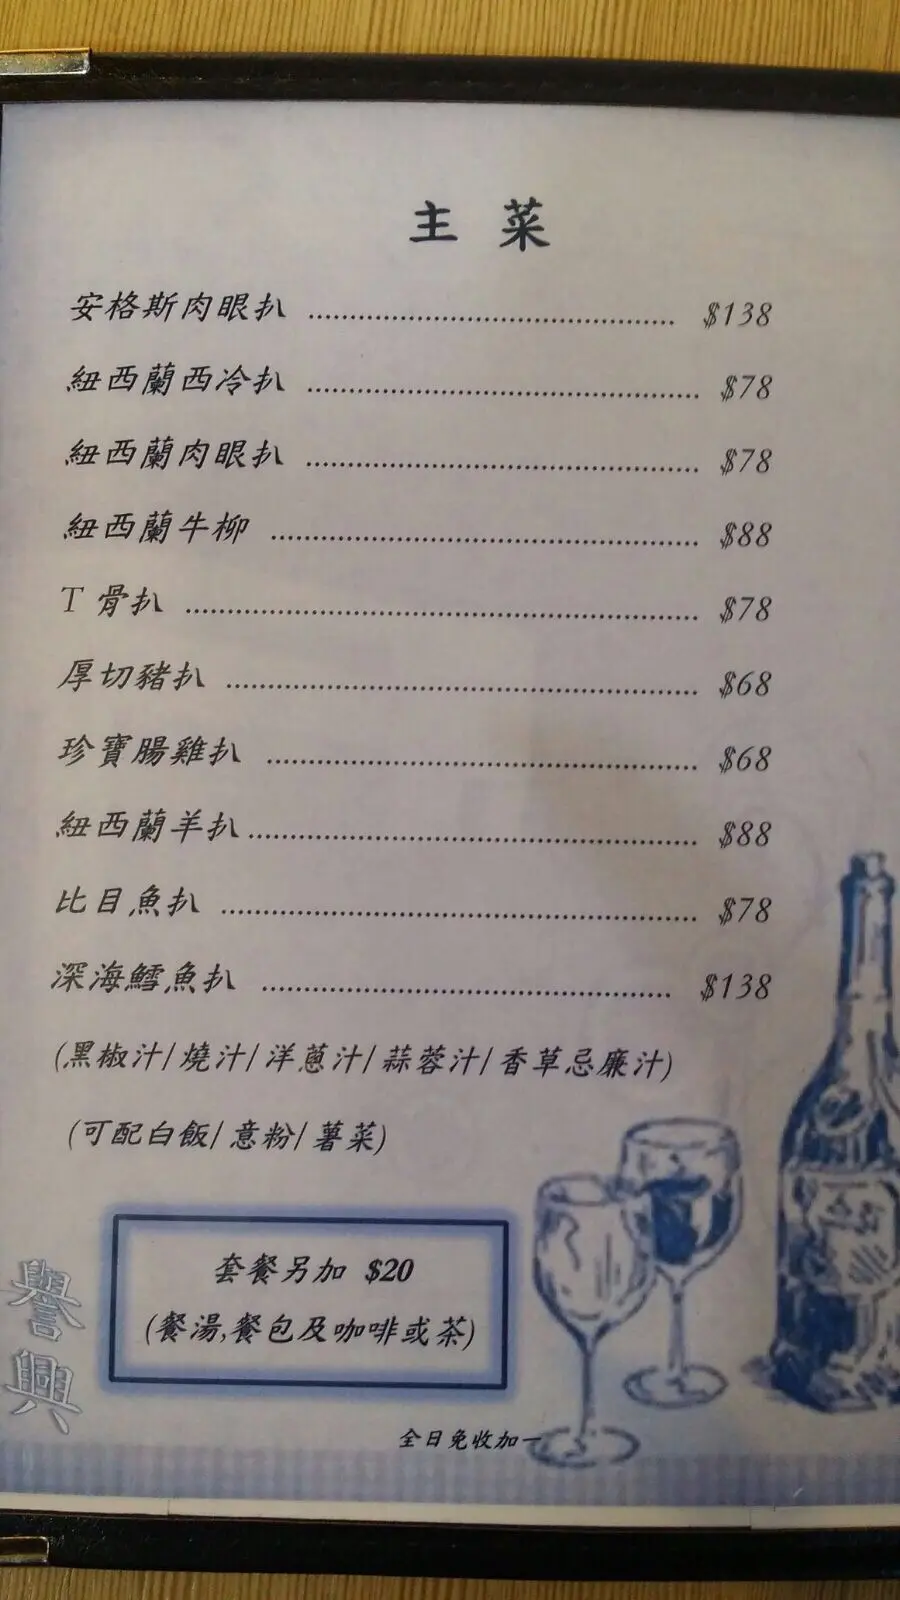 主菜
安格斯肉眼扒 ........................ $138
紐西蘭西冷扒 ........................ $78
紐西蘭肉眼扒 ........................ $78
紐西蘭牛柳 ........................ $88
T 骨扒 ........................ $78
厚切豬扒 ........................ $68
珍寶腸雞扒 ........................ $68
紐西蘭羊扒 ........................ $88
比目魚扒 ........................ $78
深海鱈魚扒 ........................ $138
(黑椒汁/ 燒汁/ 洋蔥汁/ 蒜蓉汁/ 香草忌廉汁)
(可配白飯/ 意粉/ 薯菜)
套餐另加 $20
(餐湯,餐包及咖啡或茶)
譽興
全日免收加一